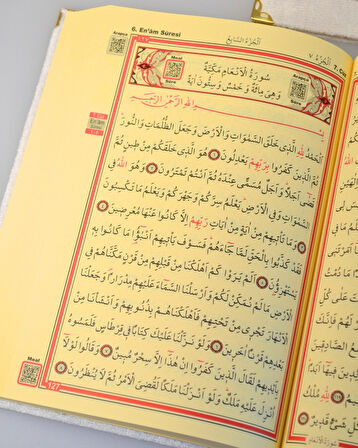 6. En'âm Sûresi
اَلْجُزْءُ السَّابِعُ
اَلْجُزْءُ ٧
7. Cüz
Arapça
Meal
Arapça
Sûre
سُورَةُ الْاَنْعَامِ مَكِّيَّةٌ
وَهِيَ مِائَةٌ وَخَمْسٌ وَسِتُّونَ اٰيَةً
بِسْمِ اللّٰهِ الرَّحْمٰنِ الرَّحِيمِ
اَلْحَمْدُ لِلّٰهِ الَّذِي خَلَقَ السَّمٰوَاتِ وَالْاَرْضَ وَجَعَلَ الظُّلُمَاتِ وَالنُّورَ
ثُمَّ الَّذِينَ كَفَرُوا بِرَبِّهِمْ يَعْدِلُونَ هُوَ الَّذِي خَلَقَكُمْ مِنْ طِينٍ ثُمَّ
قَضٰٓى اَجَلًا وَاَجَلٌ مُسَمًّى عِنْدَهُ ثُمَّ اَنْتُمْ تَمْتَرُونَ وَهُوَ اللّٰهُ فِي
السَّمٰوَاتِ وَفِي الْاَرْضِ يَعْلَمُ سِرَّكُمْ وَجَهْرَكُمْ وَيَعْلَمُ مَا تَكْسِبُونَ
وَمَا تَأْتِيهِمْ مِنْ اٰيَةٍ مِنْ اٰيَاتِ رَبِّهِمْ اِلَّا كَانُوا عَنْهَا مُعْرِضِينَ
فَقَدْ كَذَّبُوا بِالْحَقِّ لَمَّا جَٓاءَهُمْ فَسَوْفَ يَأْتِيهِمْ اَنْبٰٓؤُا مَا كَانُوا بِهِ
يَسْتَهْزِؤُنَ اَلَمْ يَرَوْا كَمْ اَهْلَكْنَا مِنْ قَبْلِهِمْ مِنْ قَرْنٍ مَكَّنَّاهُمْ فِي
الْاَرْضِ مَا لَمْ نُمَكِّنْ لَكُمْ وَاَرْسَلْنَا السَّمَٓاءَ عَلَيْهِمْ مِدْرَارًا وَجَعَلْنَا
الْاَنْهَارَ تَجْرِي مِنْ تَحْتِهِمْ فَاَهْلَكْنَاهُمْ بِذُنُوبِهِمْ وَاَنْشَأْنَا مِنْ
بَعْدِهِمْ قَرْنًا اٰخَرِينَ وَلَوْ نَزَّلْنَا عَلَيْكَ كِتَابًا فِي قِرْطَاسٍ فَلَمَسُوهُ
بِاَيْدِيهِمْ لَقَالَ الَّذِينَ كَفَرُٓوا اِنْ هٰذَٓا اِلَّا سِحْرٌ مُبِينٌ وَقَالُوا لَوْلَٓا
اُنْزِلَ عَلَيْهِ مَلَكٌ وَلَوْ اَنْزَلْنَا مَلَكًا لَقُضِيَ الْاَمْرُ ثُمَّ لَا يُنْظَرُونَ
Meal
127